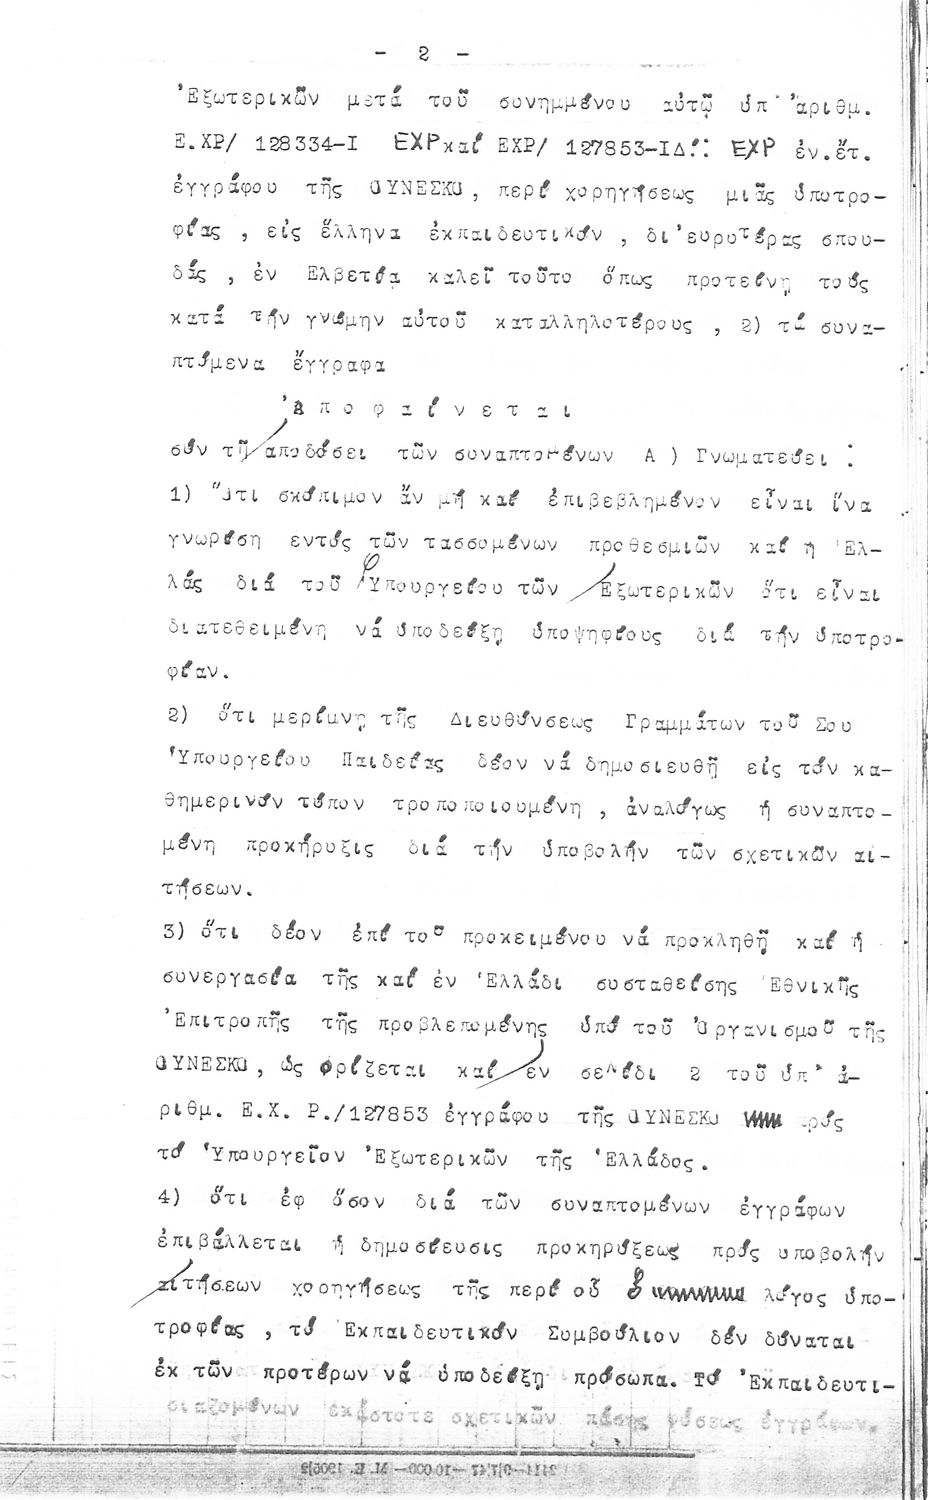 - 2 -
Ἐξωτερικῶν μετά τοῦ συνημμένου αὐτῷ ὑπ' ἀριθμ.
Ε.ΧΡ/ 128334-Ι ΕΧΡ καί ΕΧΡ/ 127853-ΙΔ!: ΕΧΡ ἐν.ἔτ.
ἐγγράφου τῆς ΟΥΝΕΣΚΟ, περί χορηγήσεως μιᾶς ὑποτρο-
φίας , εἰς ἕλληνα ἐκπαιδευτικόν , δι'ευρυτέρας σπου-
δάς , ἐν Ελβετίᾳ καλεῖ τοῦτο ὅπως προτείνῃ τούς
κατά τήν γνώμην αὐτοῦ καταλληλοτέρους , 2) τά συνα-
πτόμενα ἔγγραφα
Ἀ π ο φ α ί ν ε τ α ι
σύν τῇ αποδόσει τῶν συναπτομένων Α ) Γνωματεύει :
1) Ὅτι σκόπιμον ἄν μή καί ἐπιβεβλημένον εἶναι ἵνα
γνωρίση εντός τῶν τασσομένων προθεσμιῶν καί η Ἑλ-
λάς διά τοῦ Ὑπουργείου τῶν Ἐξωτερικῶν ὅτι εἶναι
διατεθειμένη νά ὑποδείξῃ ὑποψηφίους διά τήν ὑποτρο-
φίαν.
2) ὅτι μερίμνῃ τῆς Διευθύνσεως Γραμμάτων τοῦ Σου
Ὑπουργείου Παιδείας δέον νά δημοσιευθῇ εἰς τόν κα-
θημερινόν τύπον τροποποιουμένη , ἀναλόγως ἡ συναπτο-
μένη προκήρυξις διά τήν ὑποβολήν τῶν σχετικῶν αἰ-
τήσεων.
3) ὅτι δέον ἐπί τοῦ προκειμένου νά προκληθῇ καί ἡ
συνεργασία τῆς καί ἐν Ἑλλάδι συσταθείσης Ἐθνικῆς
Ἐπιτροπῆς τῆς προβλεπομένης ὑπό τοῦ Ὀργανισμοῦ τῆς
ΟΥΝΕΣΚΟ, ὡς ὁρίζεται καί ἐν σελίδι 2 τοῦ ὑπ' ἀ-
ριθμ. Ε.Χ. Ρ./127853 ἐγγράφου τῆς ΟΥΝΕΣΚΟ πρός
τό Ὑπουργεῖον Ἐξωτερικῶν τῆς Ἑλλάδος.
4) ὅτι ἐφ ὅσον διά τῶν συναπτομένων ἐγγράφων
ἐπιβάλλεται ἡ δημοσίευσις προκηρύξεως πρός υποβολήν
αἰτήσεων χορηγήσεως τῆς περί οὗ ὁ λόγος ὑπο-
τροφίας , τό Ἐκπαιδευτικόν Συμβούλιον δέν δύναται
ἐκ τῶν προτέρων νά ὑποδείξῃ πρόσωπα. Τό Ἐκπαιδευτι-
σιαζομένων ἑκάστοτε σχετικῶν πάσης φύσεως ἐγγράφων.